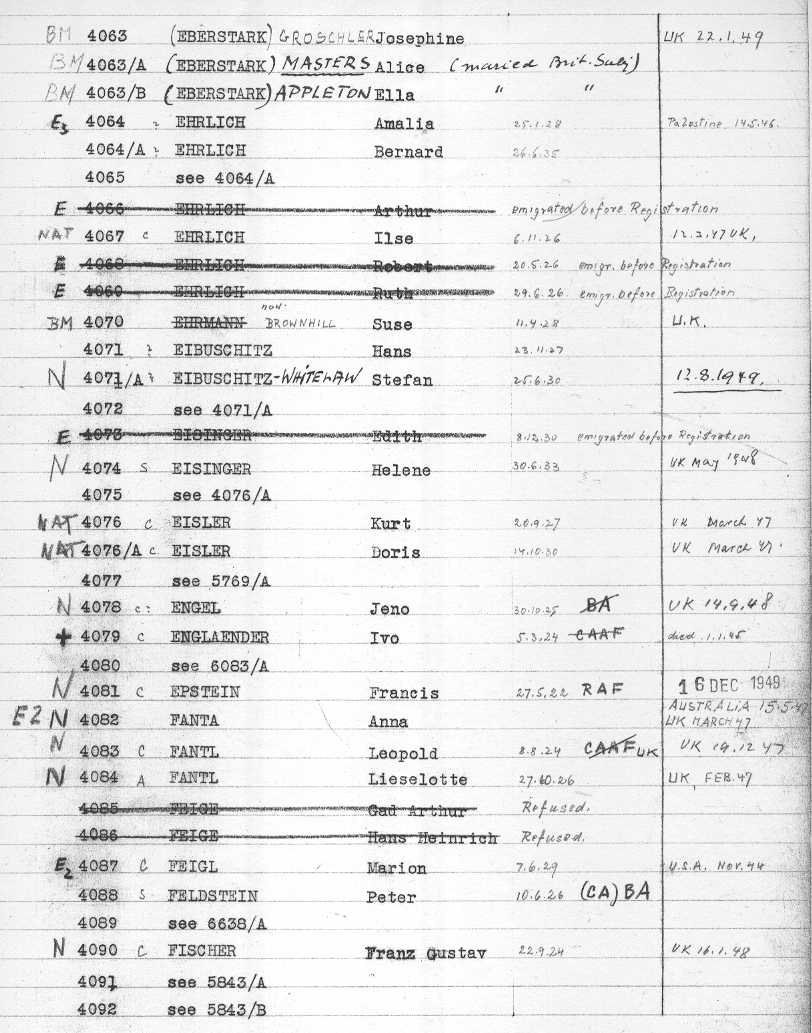 BM 4063 (EBERSTARK) GROSCHLER Josephine UK 22.1.49
BM 4063/A (EBERSTARK) MASTERS Alice (married Brit. Subj)
BM 4063/B (EBERSTARK) APPLETON Ella " "
E3 4064 EHRLICH Amalia 25.1.28 Palestine 14.5.46.
4064/A EHRLICH Bernard 26.6.35
4065 see 4064/A
E 4066 EHRLICH Arthur emigrated before Registration
NAT 4067 c EHRLICH Ilse 6.11.26 12.3.47 UK,
E 4068 EHRLICH Robert 20.5.26 emigr. before Registration
E 4069 EHRLICH Ruth 29.6.26 emigr. before Registration
BM 4070 EHRMANN now BROWNHILL Suse 11.4.28 U.K.
4071 EIBUSCHITZ Hans 23.11.27
N 4071/A EIBUSCHITZ-WHITELAW Stefan 25.6.30 12.8.1949,
4072 see 4071/A
E 4073 EISINGER Edith 8.12.30 emigrated before Registration
N 4074 S EISINGER Helene 30.6.33 UK May 1948
4075 see 4076/A
NAT 4076 c EISLER Kurt 20.9.27 UK March 47
NAT 4076/A c EISLER Doris 14.10.30 UK March 47.
4077 see 5769/A
N 4078 c ENGEL Jeno 30.10.25 BA UK 14.9.48
+ 4079 c ENGLAENDER Ivo 5.3.24 CAAF died 1.1.45
4080 see 6083/A
N 4081 c EPSTEIN Francis 27.5.22 RAF 16 DEC 1949
E2 N 4082 FANTA Anna AUSTRALIA 15.5.
UK MARCH 47
N 4083 C FANTL Leopold 8.8.24 CAAF UK UK 19.12 47
N 4084 A FANTL Lieselotte 27.10.26 UK, FEB.47
4085 FEIGE Gad Arthur Refused.
4086 FEIGE Hans Heinrich Refused.
E2 4087 C FEIGL Marion 7.6.29 U.S.A. Nov.44
4088 S FELDSTEIN Peter 10.6.26 (CA) BA
4089 see 6638/A
N 4090 C FISCHER Franz Gustav 22.9.24 UK 16.1.48
4091 see 5843/A
4092 see 5843/B